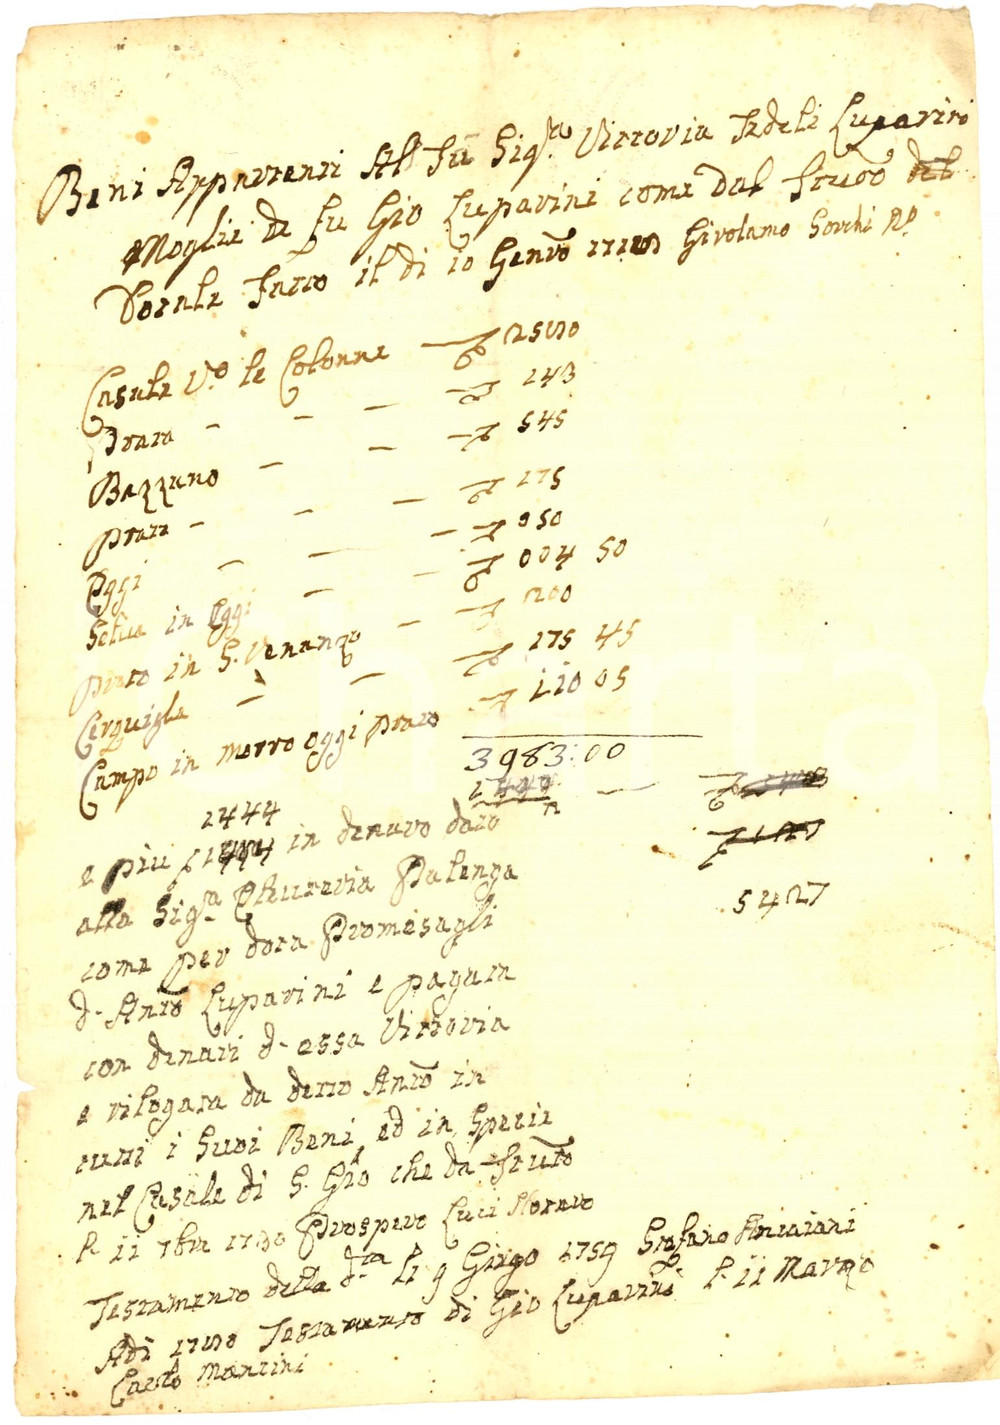 Beni Appartenti Alla Fu Sig.ra Vittoria Fedeli Luparini
Moglie de fu Gio Luparini come dal
Dotale fatto il di 10 Genro Girolamo Sorchi No
Casale V.o le Colonne — 2500
Prato - - - 243
Bazzano - - 545
prato - - - 175
Eggi - - - 050
Selva in Eggi - - 004 50
pirto in S. Venanzo - 200
Cerquiglia - - 175 45
Campo in morro oggi prato 110 05
3983:00
1444
1444
e più in denaro dato
alla Sig.ra Palenga
5427
come per dota Promesagli
d. Anto Luparini e pagata
con denari d. essa Vittoria
e rilogata da detto Anto in
tutti i Suoi Beni ed in Specie
nel Casale di S. Gio che da
P. 11 7bre Prospero Luci Notaro
Testamento della d.ta li 9 Giugo 1759 Stefano
Adi Testamento di Gio Luparini P. 11 Marzo
Carlo Mancini